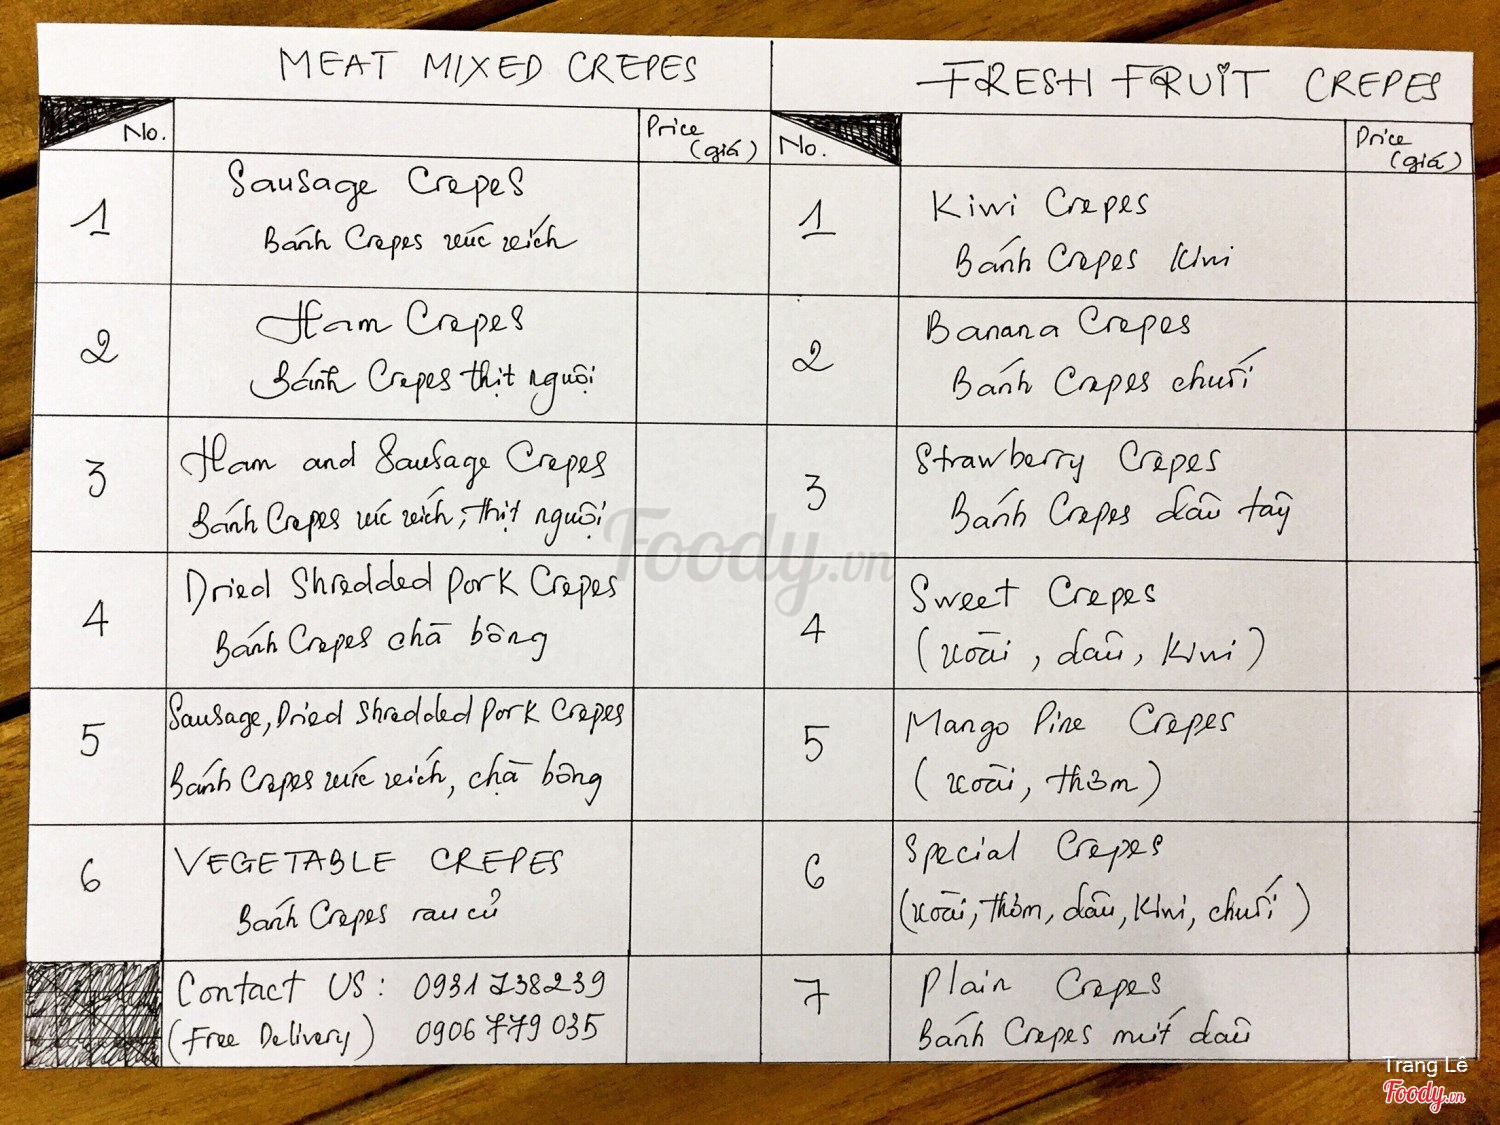 MEAT MIXED CREPES
No.
Price
(giá)
1
Sausage Crepes
Bánh Crepes xúc xích
2
Ham Crepes
Bánh Crepes thịt nguội
3
Ham and Sausage Crepes
Bánh Crepes xúc xích, thịt nguội
4
Dried Shredded Pork Crepes
Bánh Crepes chà bông
5
Sausage, Dried Shredded Pork Crepes
Bánh Crepes xúc xích, chà bông
6
VEGETABLE CREPES
Bánh Crepes rau củ
Contact US: 0931 738239
(Free Delivery) 0906 779 035
FRESH FRUIT CREPES
No.
Price
(giá)
1
Kiwi Crepes
Bánh Crepes Kiwi
2
Banana Crepes
Bánh Crepes chuối
3
Strawberry Crepes
Bánh Crepes dâu tây
4
Sweet Crepes
(xoài, dâu, Kiwi)
5
Mango Pine Crepes
(xoài, thơm)
6
Special Crepes
(xoài, thơm, dâu, Kiwi, chuối)
7
Plain Crepes
Bánh Crepes mứt dâu
Foody.vn
Trang Lê
Foody.vn